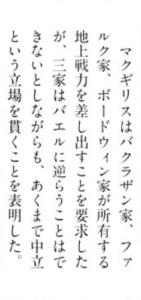 マクギリスはバクラザン家、ファ
ルク家、ボードウィン家が所有する
地上戦力を差し出すことを要求した
が、三家はバエルに逆らうことはで
きないとしながらも、あくまで中立
という立場を貫くことを表明した。